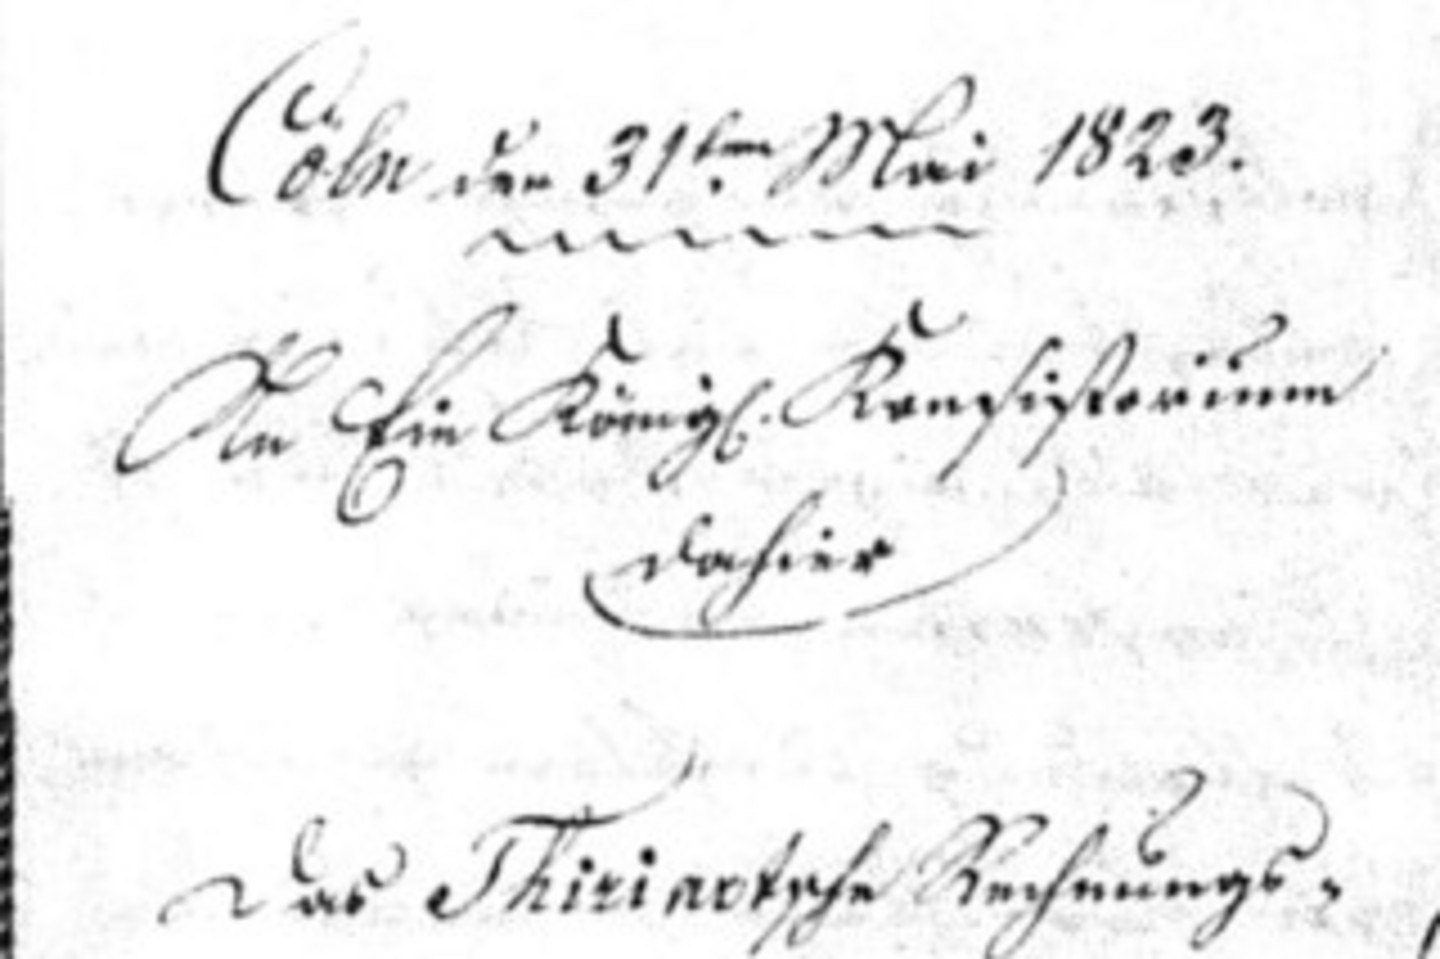 Cöln den 31ten Mai 1823.
An Ein Königl. Konsistorium
dahier
Das Thiriartsche Rechnungs-